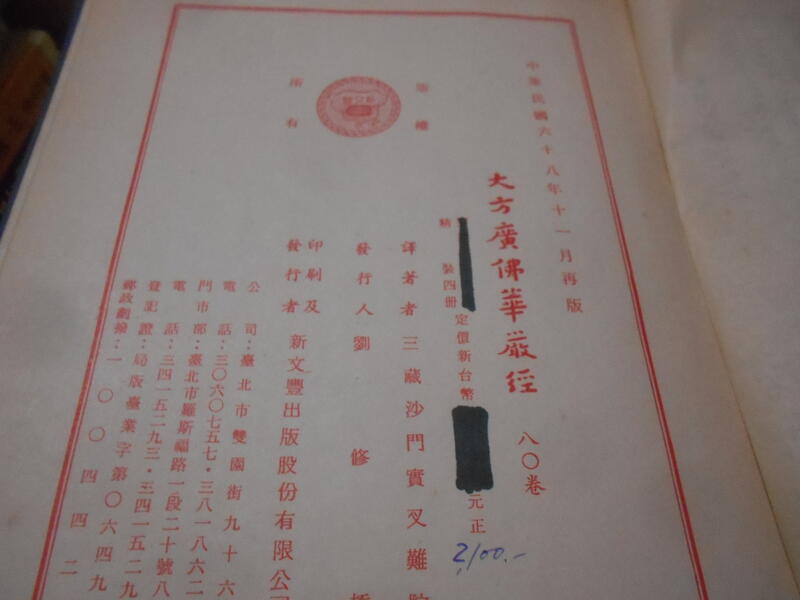 中華民國六十八年十一月再版
大方廣佛華嚴經 八〇卷
精裝四册 定價新台幣 元正
2,100.-
版權
所有
譯著者 三藏沙門實叉難陀
發行人 劉修
印刷及
發行者 新文豐出版股份有限公
公司：臺北市雙園街九十六
電話：三〇六〇七五七・三八一八六二
門市部：臺北市羅斯福路一段二十號八
電話：三四一五二九三・三四一五二九
登記證：局版臺業字第〇六四九
郵政劃撥：一〇〇四四二